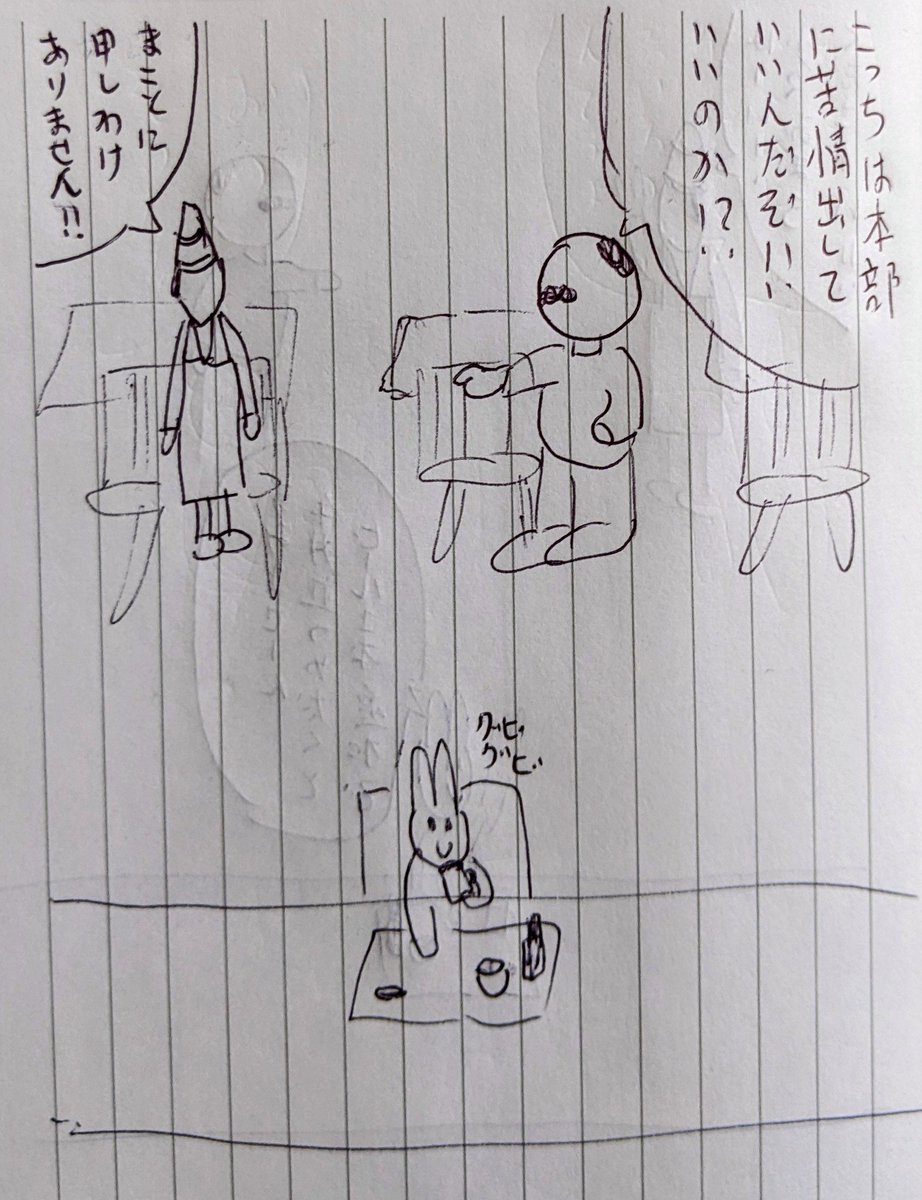 こっちは本部
に苦情出して
いいんだぞ!!
いいのか!?
まことに
申しわけ
ありません!!
グビ
グビ